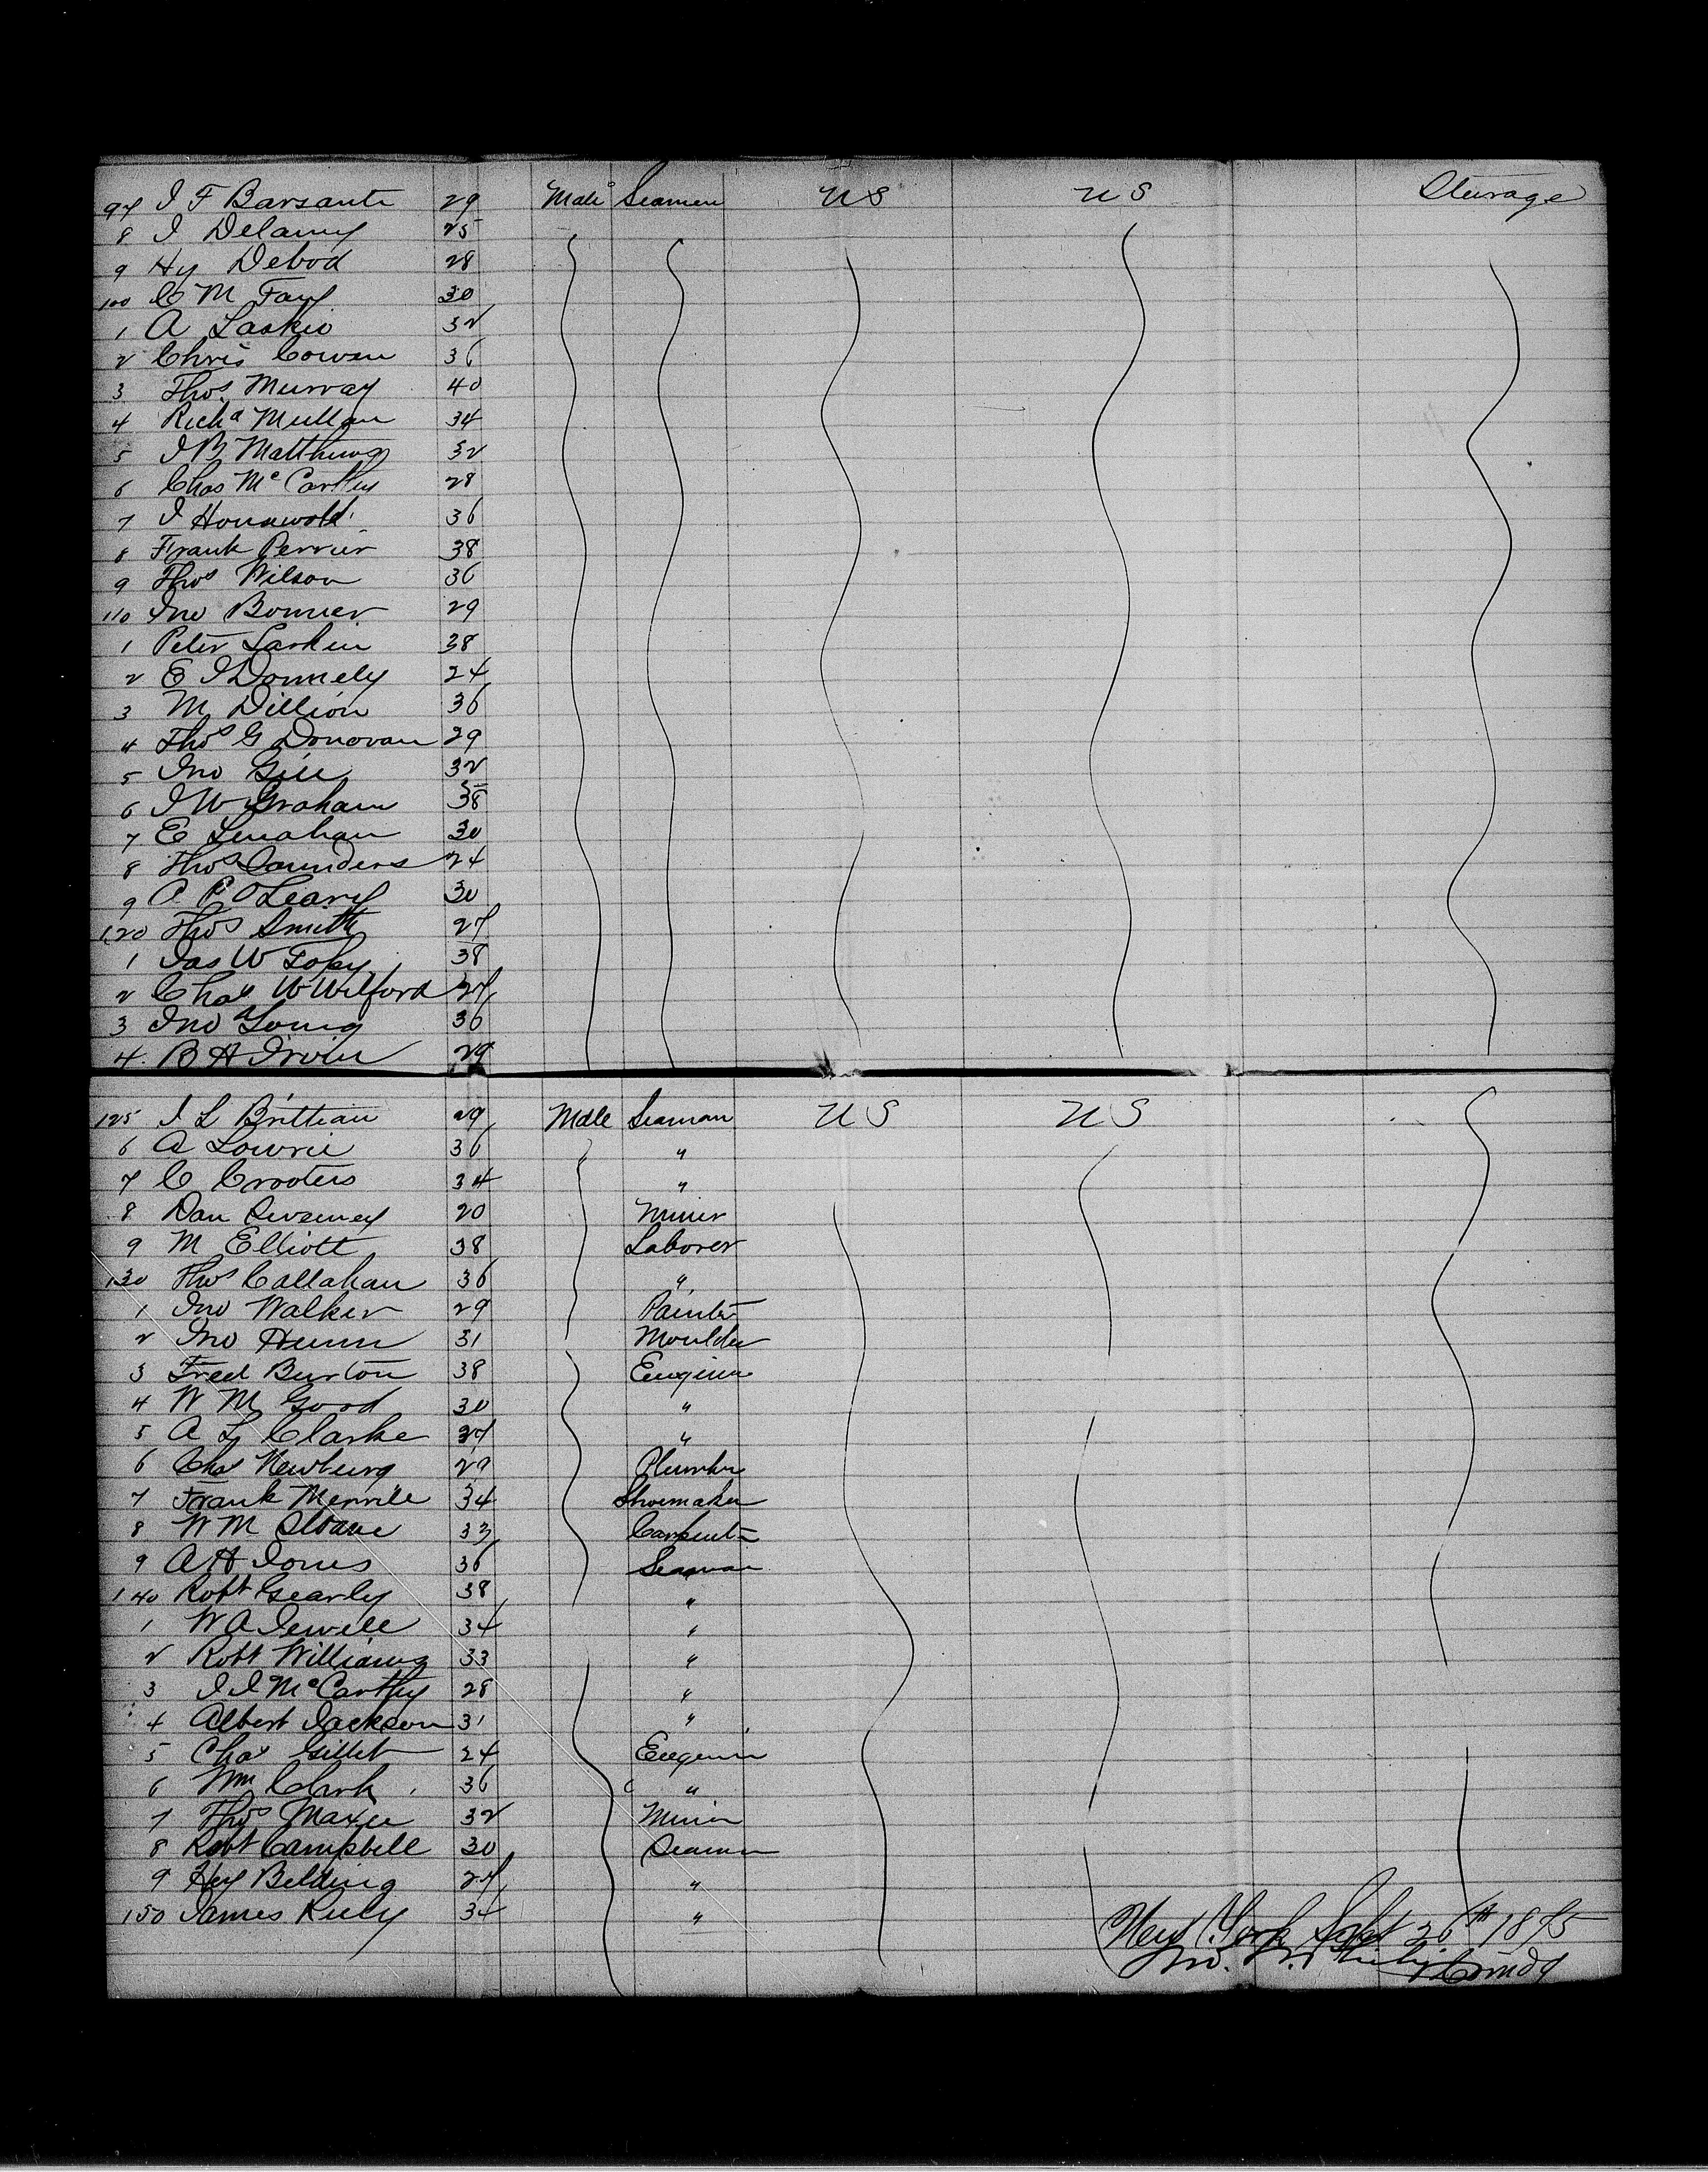 97 J F Barsanti 29 Male Seamen U S U S Steerage
8 J Delaney 25
9 Hy Debod 28
100 C M Fay 30
1 A Laskio 32
2 Chris Cowen 36
3 Thos Murray 40
4 Richd Mullan 34
5 J B Matthews 32
6 Chas McCarthy 28
7 J 36
8 Frank Perrier 38
9 Thos Wilson 36
110 Jno Bonner 29
1 Peter Larkin 38
2 E J Donnely 24
3 M Dillion 36
4 Thos G Donovan 29
5 Jno Gill 32
6 J W Graham 38
7 E Lenahan 30
8 Thos Saunders 24
9 A P O'Leary 30
120 Thos Smith 27
1 Jas W Toby 38
2 Chas W Wilford 27
3 Jno Young 36
4. B H Irvin 29
125 J L Brittian 29 Male Seaman U S U S
6 A Lowrie 36 "
7 C Crooters 34 "
8 Dan Sweeney 20 Miner
9 M Elliott 38 Laborer
130 Thos Callahan 36 "
1 Jno Walker 29 Painter
2 Jno Hunn 31 Moulder
3 Fred Burton 38 Engineer
4 W M Good 30 "
5 A L Clarke 27 "
6 Chas Newburg 29 Plumber
7 Frank Merrile 34 Shoemaker
8 W M Sloane 33 Carpenter
9 A H Jones 36 Seaman
140 Robt Gearly 38 "
1 W A Jewell 34 "
2 Robt Williams 33 "
3 J J McCarthy 28 "
4 Albert Jackson 31 "
5 Chas Gillet 24 Engineer
6 Wm Clark 36 "
7 Thos Maxee 32 Miner
8 Robt Campbell 30 Seaman
9 Hy Belding 27 "
150 James Riely 34 "
New York Sept 26th 1875
Jno. W. Philip Comdg